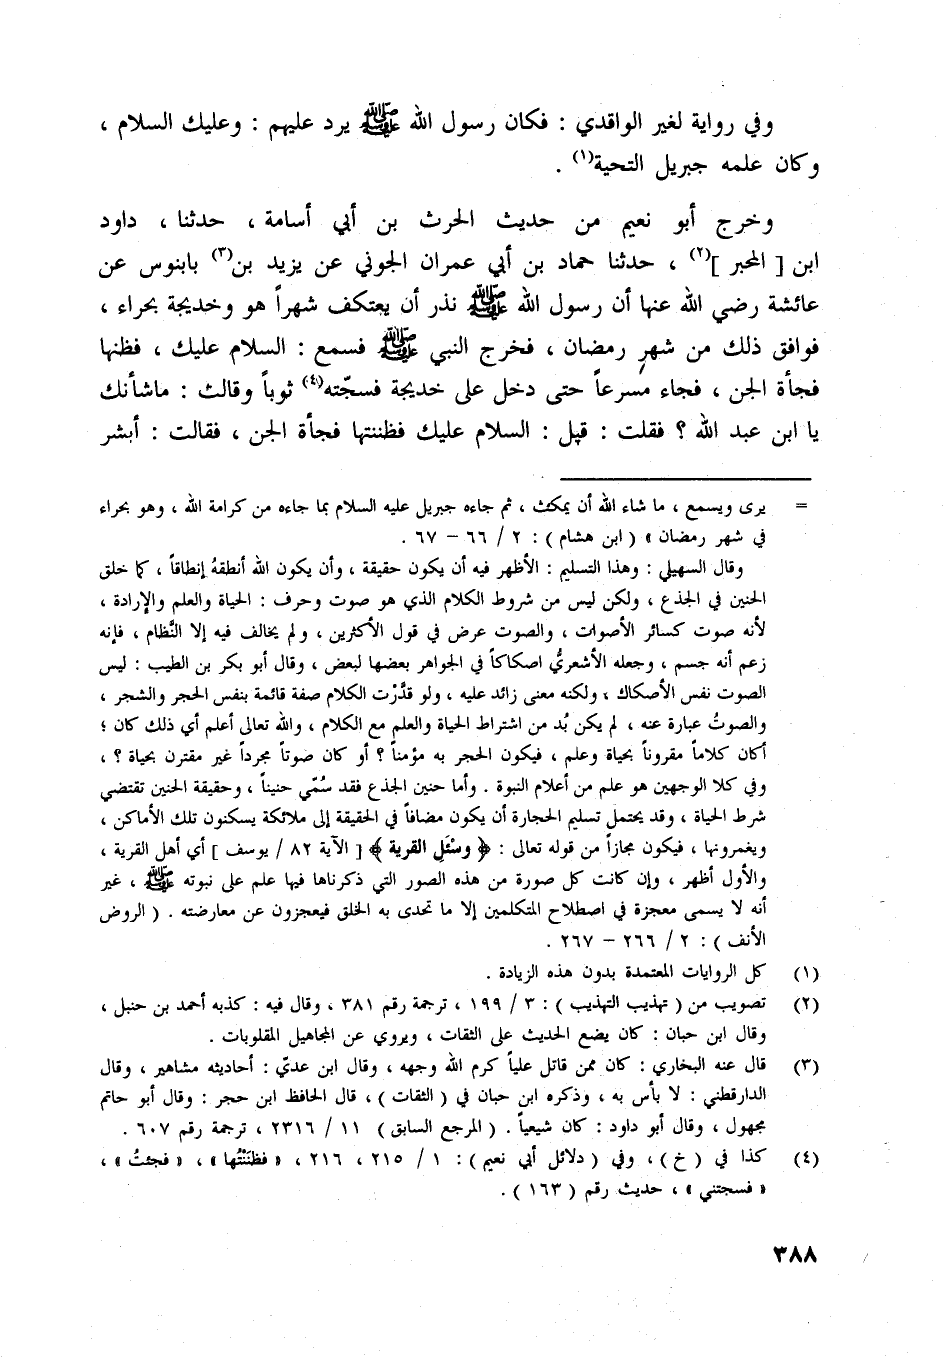 وفي رواية لغير الواقدي : فكان رسول الله ﷺ يرد عليهم : وعليك السلام ،
وكان علمه جبريل التحية(١) .
وخرج أبو نعيم من حديث الحرث بن أبي أسامة ، حدثنا ، داود
ابن [ المحبر ](٢) ، حدثنا حماد بن أبي عمران الجوني عن يزيد بن(٣) بابنوس عن
عائشة رضي الله عنها أن رسول الله ﷺ نذر أن يعتكف شهراً هو وخديجة بحراء ،
فوافق ذلك من شهرِ رمضان ، فخرج النبي ﷺ فسمع : السلام عليك ، فظنها
فجأة الجن ، فجاء مسرعاً حتى دخل على خديجة فسجّته(٤) ثوباً وقالت : ماشأنك
يا ابن عبد الله ؟ فقلت : قيل : السلام عليك فظننتها فجأة الجن ، فقالت : أبشر
= يرى ويسمع ، ما شاء الله أن يمكث ، ثم جاءه جبريل عليه السلام بما جاءه من كرامة الله ، وهو بحراء
في شهر رمضان » ( ابن هشام ) : ٢ / ٦٦ - ٦٧ .
وقال السهيلي : وهذا التسليم : الأظهر فيه أن يكون حقيقة ، وأن يكون الله أنطقهُ إنطاقاً ، كما خلق
الحنين في الجذع ، ولكن ليس من شروط الكلام الذي هو صوت وحرف : الحياة والعلم والإرادة ،
لأنه صوت كسائر الأصوات ، والصوت عرض في قول الأكثرين ، ولم يخالف فيه إلا النَّظام ، فإنه
زعم أنه جسم ، وجعله الأشعريُّ اصكاكاً في الجواهر بعضها لبعض ، وقال أبو بكر بن الطيب : ليس
الصوت نفس الأصكاك ، ولكنه معنى زائد عليه ، ولو قدَّرْت الكلام صفة قائمة بنفس الحجر والشجر ،
والصوتُ عبارة عنه ، لم يكن بُد من اشتراط الحياة والعلم مع الكلام ، والله تعالى أعلم أي ذلك كان ؛
أكان كلاماً مقروناً بحياة وعلم ، فيكون الحجر به مؤمناً ؟ أو كان صوتاً مجرداً غير مقترن بحياة ؟ ،
وفي كلا الوجهين هو علم من أعلام النبوة . وأما حنين الجذع فقد سُمّي حنيناً ، وحقيقة الحنين تقتضي
شرط الحياة ، وقد يحتمل تسليم الحجارة أن يكون مضافاً في الحقيقة إلى ملائكة يسكنون تلك الأماكن ،
ويغمرونها ، فيكون مجازاً من قوله تعالى : ﴿ وسْئَلِ القرية ﴾ [ الآية ٨٢ / يوسف ] أي أهل القرية ،
والأول أظهر ، وإن كانت كل صورة من هذه الصور التي ذكرناها فيها علم على نبوته ﷺ ، غير
أنه لا يسمى معجزة في اصطلاح المتكلمين إلا ما تحدى به الخلق فيعجزون عن معارضته . ( الروض
الأنف ) : ٢ / ٢٦٦ - ٢٦٧ .
(١) كل الروايات المعتمدة بدون هذه الزيادة .
(٢) تصويب من ( تهذيب التهذيب ) : ٣ / ١٩٩ ، ترجمة رقم ٣٨١ ، وقال فيه : كذبه أحمد بن حنبل ،
وقال ابن حبان : كان يضع الحديث على الثقات ، ويروي عن المجاهيل المقلوبات .
(٣) قال عنه البخاري : كان ممن قاتل علياً كرم الله وجهه ، وقال ابن عديّ : أحاديثه مشاهير ، وقال
الدارقطني : لا بأس به ، وذكره ابن حبان في ( الثقات ) ، قال الحافظ ابن حجر : وقال أبو حاتم
مجهول ، وقال أبو داود : كان شيعياً . ( المرجع السابق ) ١١ / ٢٣١٦ ، ترجمة رقم ٦٠٧ .
(٤) كذا في ( خ ) ، وفي ( دلائل أبي نعيم ) : ١ / ٢١٥ ، ٢١٦ ، « فظَنَنْتُها » ، « فجئتُ » ،
« فسجتني » ، حديث رقم ( ١٦٣ ) .
٣٨٨